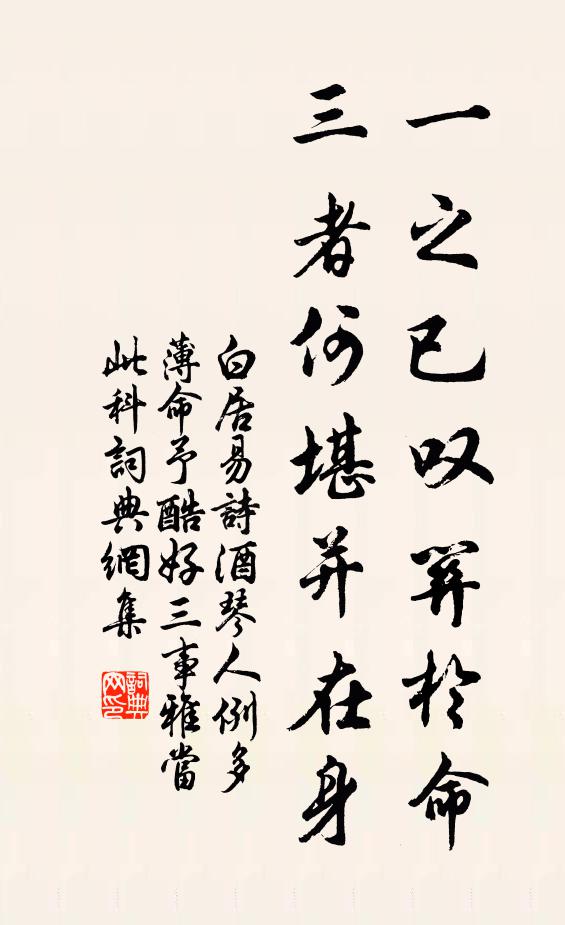 一之已叹關於命
三者何堪并在身
白居易詩酒琴人例多
薄命予酷好三事雅當
此科詞典網集
詞典
网印